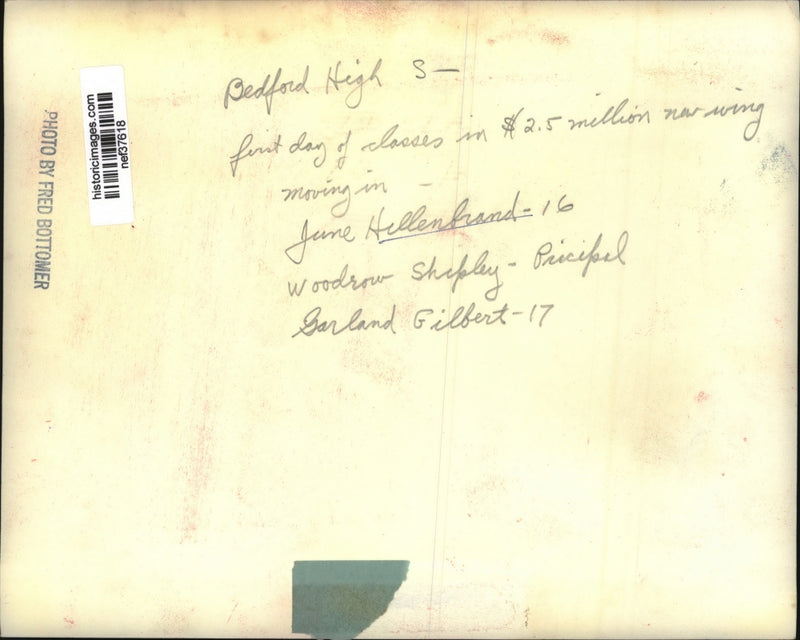 Bedford High S—
first day of classes in $2.5 million new wing
moving in –
June Hellenbrand - 16
Woodrow Shepley - Pricipal
Garland Gilbert - 17
PHOTO BY FRED BOTTOMER
historicimages.com
nef37618